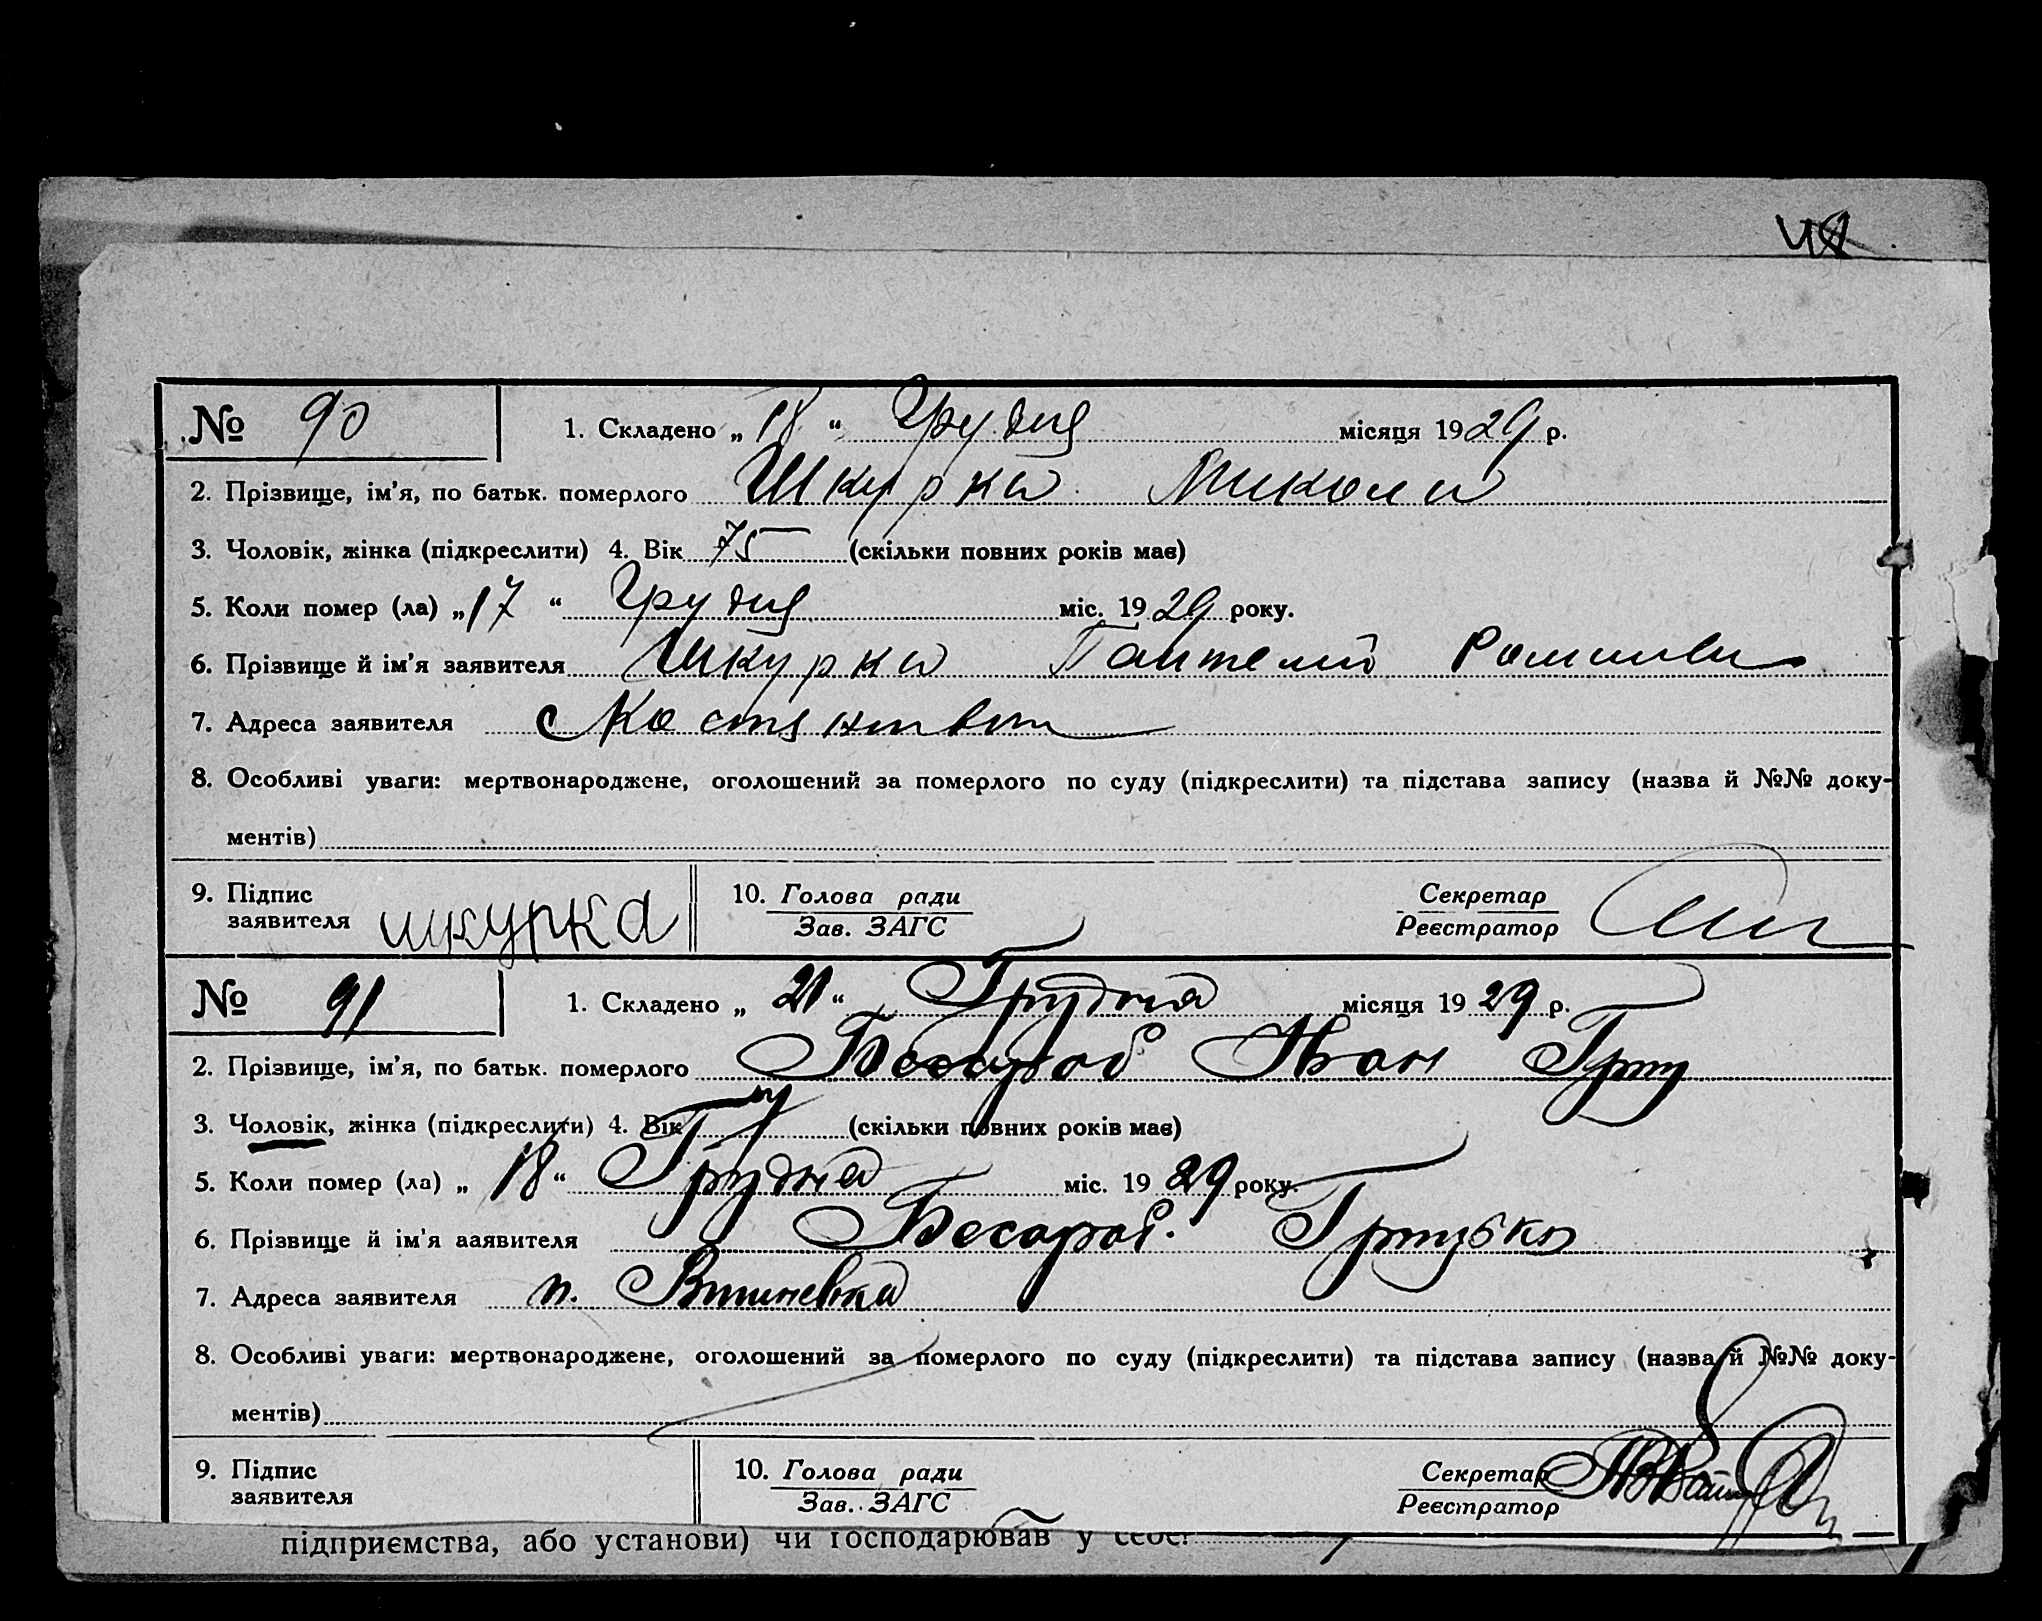 № 90 1. Складено „ 18 “ Грудня місяця 1929 р.
2. Прізвище, ім’я, по батьк. померлого Шкурка Микола
3. Чоловік, жінка (підкреслити) 4. Вік 75 (скільки повних років має)
5. Коли помер (ла) „ 17 “ Грудня міс. 1929 року.
6. Прізвище й ім’я заявителя Шкурка Пантелий
7. Адреса заявителя с
8. Особливі уваги: мертвонароджене, оголошений за померлого по суду (підкреслити) та підстава запису (назва й №№ доку-
ментів)
9. Підпис заявителя шкурка 10. Голова ради Секретар
Зав. ЗАГС Реєстратор
№ 91 1. Складено „ 21 “ Грудня місяця 1929 р.
2. Прізвище, ім’я, по батьк. померлого Бесараб Иван
3. Чоловік, жінка (підкреслити) 4. Вік (скільки повних років має)
5. Коли помер (ла) „ 18 “ Грудня міс. 1929 року.
6. Прізвище й ім’я заявителя Бесараб. Грицько
7. Адреса заявителя
8. Особливі уваги: мертвонароджене, оголошений за померлого по суду (підкреслити) та підстава запису (назва й №№ доку-
ментів)
9. Підпис заявителя 10. Голова ради Секретар
Зав. ЗАГС Реєстратор
підприємства, або установи) чи господарював у себе?